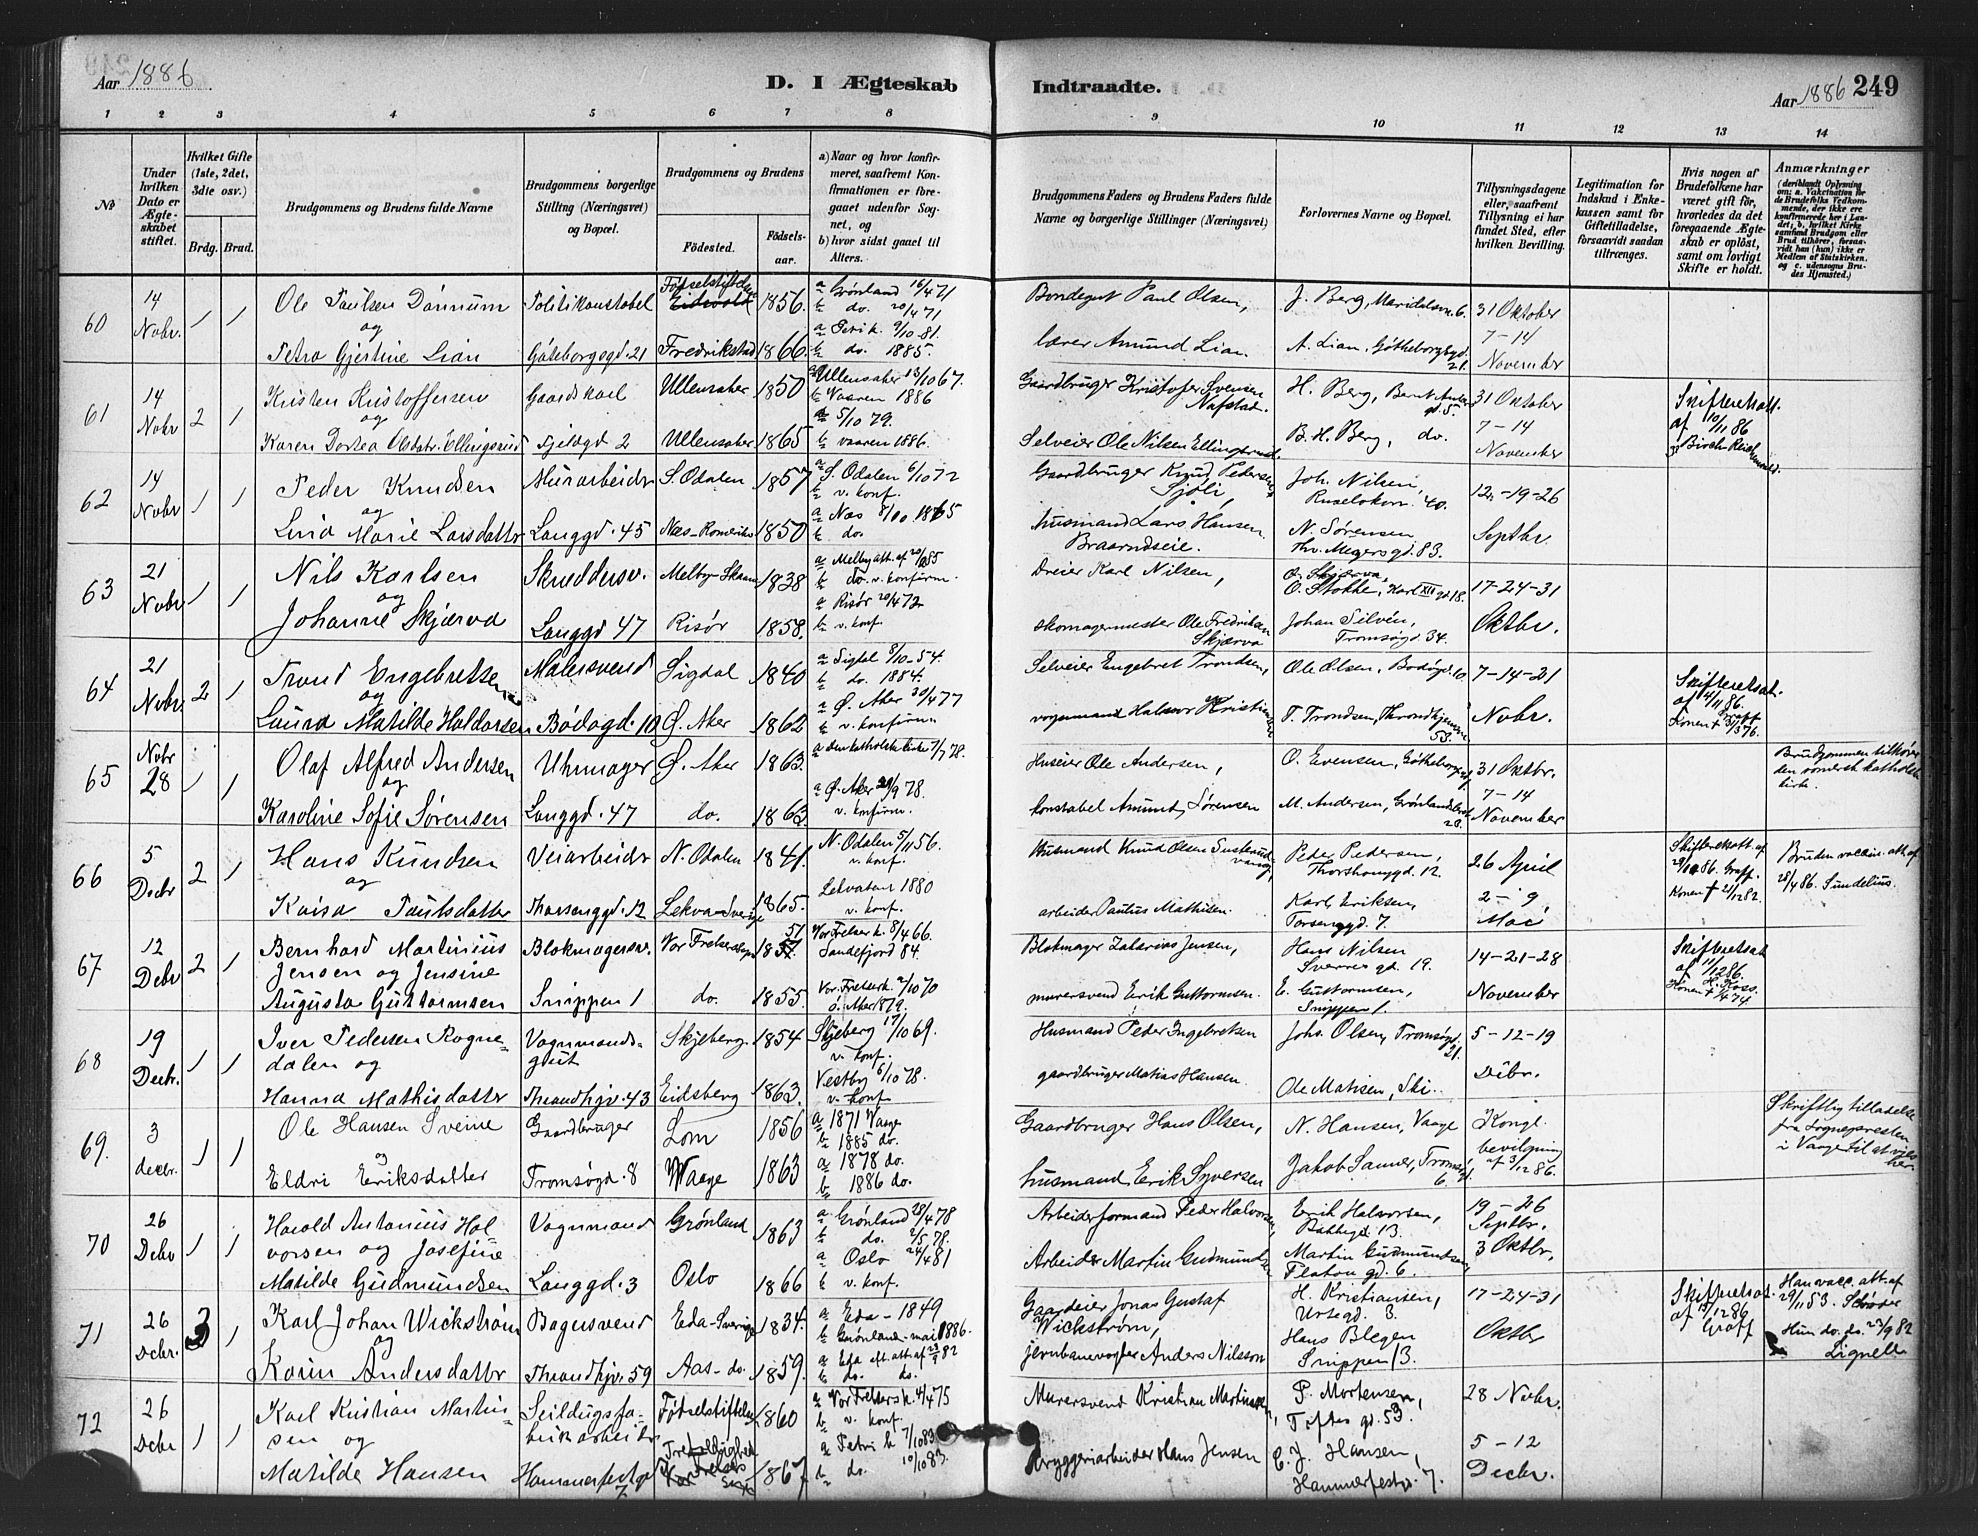 Aar 1886
D. I Ægteskab
Indtraadte.
Aar 1886 249
1 2 3 4 5 6 7 8 9 10 11 12 13 14
No
Under hvilken Dato er Ægteskabet stiftet.
Hvilket Gifte (1ste, 2det, 3die osv.)
Brdg. Brud.
Brudgommens og Brudens fulde Navne
Brudgommens borgerlige Stilling (Næringsvei) og Bopæl.
Brudgommens og Brudens
Fødested.
Fødsels-aar.
a) Naar og hvor konfirmeret, saafremt Konfirmationen er foregaaet udenfor Sognet, og
b) hvor sidst gaaet til Alters.
Brudgommens Faders og Brudens Faders fulde Navne og borgerlige Stillinger (Næringsvei)
Forlovernes Navne og Bopæl.
Tillysningsdagene eller, saafremt Tillysning ei har fundet Sted, efter hvilken Bevilling.
Legitimation for Indskud i Enkekassen samt for Giftetilladelse, forsaavidt saadan tiltrænges.
Hvis nogen af Brudefolkene har været gift før, hvorledes da det foregaaende Ægteskab er opløst, samt om lovligt Skifte er holdt.
Anmærkninger
60 14 Novbr. 1 1
Ole Paulsen Dønnum og
Politikonstabel Fødselsstiftelsen 1856.
a Grønland 16/4 71
b do. 20/4 71
Bondegut Paul Olsen, J. Berg, Maridalsvn. 6. 31 Oktober
Petra Gjertine Lian Gøteborgsgd. 21 Fredrikstad 1866.
a Petri k. 9/10 81.
b do. 1885.
lærer Amund Lian. A. Lian, Gøtheborgsgd. 21. 7-14 November
61 14 Novbr 2 1
Kristen Kristoffersen og
Gaardskarl Ullensaker 1850
a Ullensaker 13/10 67.
b Vaaren 1886
Gaardbruger Kristofer Svensen Nafstad. H. Berg, Bernt Ankers gd. 5. 31 Oktober
Skifteretsatt. af 12/11 86
Karen Dortea Olsdatr. Ellingsrud Ullensaker 1865
a 5/10 79.
b vaaren 1886.
Selveier Ole Nilsen Ellingsrud. B. H. Berg, do. 7-14 November
62 14 Novbr 1 1
Peder Knudsen og
Murarbeider S. Odalen 1857
a S. Odalen 6/10 72
b v. konf.
Gaardbruger Knud Pedersen Sjøli, Joh. Nilsen, Ruseløkvn. 40. 12-19-26 Septbr.
Lina Marie Larsdatter Langgd. 45 Næs-Romerike 1850
a Næs 8/10 1865
b do.
husmand Lars Hansen Braarudseie. N. Sørensen Thv. Meyersgd. 83.
63 21 Novbr 1 1
Nils Karlsen og
Skræddersv. 1838
b do. v. konfirm.
Dreier Karl Nilsen, O. Stokke, Karl XII gd. 18. 17-24-31 Oktbr.
Johanne Skjærva Langgd 47 Risør 1858.
a Risør 20/4 72
b v. konf.
skomagermester Ole Fredriksen Skjærva Johan Silvén, Tromsøgd. 34.
64 21 Novbr 2 1
Trond Engebretsen og
Malersvend Sigdal 1840
a Sigdal 8/10-54.
b do. 1884.
Selveier Engebret Trondsen, Ole Olsen, Bodøgd. 10 7-14-21 Novbr.
Skifteretsat. af 4/11 86. Graff Konen † 31/5 76.
Laura Matilde Haldorsen Bodøgd. 10 Ø. Aker 1862
a Ø. Aker 30/4 77
b v. konfirm
T. Trondsen, Throndhjemsv. 53.
65 Novbr 28 1 1
Olaf Alfred Andersen og
Uhrmager Ø. Aker 1863.
a den katholske kirke 7/7 78.
Huseier Ole Andersen, O. Evensen, Gøtheborgsgd, 31 Oktbr.
Brudgommen tilhører den romersk katholske kirke.
Karoline Sofie Sørensen Langgd. 47 do. 1863.
a Ø. Aker 29/9 78.
v. konfirm.
konstabel Amund Sørensen M. Andersen, Grønlandsleret 28. 7-14 November
66 5 Decbr 2 1
Hans Knudsen og
Veiarbeider N. Odalen 1841.
N. Odalen 5/11 56.
v. konf.
Husmand Knud Olsen Peder Pedersen, Thorshaugd. 12. 26 April
Skifteretsatt. af 29/10 86. Graff. Konen † 21/12 82.
Bruden vaccin. att. af 28/4 86. Sundelius.
Kaisa Paulsdatter 1865.
1880
v. konf.
arbeider Paulus Mathisen. Karl Eriksen, 2-9 Mai
67 12 Decbr 2 1
Bernhard Martinius Jensen og Jensine
Blokmagersv. Vor Frelsers sogn 51
Vor Frelser k. 8/4 66.
Sandefjord 84.
Blokmager Zakarias Jensen, Hans Nilsen Sverres gd. 19. 14-21-28 November
Skifteretsat af 11/12 86. H. Koss. Konen † 1/4 74.
Augusta Guttormsen Snippen 1 do. 1855.
Vor. Frelserk. 2/10 70
Ø. Aker 1879.
murersvend Erik Guttormsen. E. Guttormsen, Snippen 1.
68 19 Decbr. 1 1
Iver Pedersen Rognedalen og
Vognmandsgut Skjeberg. 1854
Skjeberg 17/10 69.
v. konf.
Husmand Peder Ingebretsen Johs. Olsen, Tromsøgd. 21. 5-12-19 Decbr.
Hanna Mathisdatter Throndhjv. 43 Eidsberg 1863.
Vestby 6/10 78.
v. konf
gaardbruger Matias Hansen. Ole Matisen, Ski.
69. 3 decbr. 1 1
Ole Hansen Sveine og
Gaardbruger Lom 1856
a 1871 Vaage
b 1885 do.
Gaardbruger Hans Olsen, N. Hansen, Vaage Kongl. bevilgning af 3/12 86.
Skriftlig tilladelse fra Sognepresten i Vaage til at vies her.
Eldri Eriksdatter Tromsøgd. 8 Vaage 1863
a 1878 do.
b 1886 do.
husmand Erik Syversen Jakob Sanner, Tromsøgd. 6.
70 26 Decbr 1 1
Harald Antonius Halvorsen og Josefine
Vognmand Grønland 1863
a Grønland 28/4 78
b do. 2/5 78.
Arbeidsformand Peder Halvorsen, Erik Halvorsen, Bakkegd. 13. 19-26 Septbr.
Matilde Gudmundsen Langgd. 3 Oslo 1866
a Oslo 24/4 81
b v. konf.
Arbeider Martin Gudmundsen Martin Gudmundsen, Platou gd. 6. 3 Oktbr.
71 26 Decbr. 3 1
Karl Johan Wickstrøm og
Bagersvend Eda-Sverige 1834.
a Eda - 1849
b Grønland - mai 1886.
Gaardeier Jonas Gustaf Wickstrøm, H. Kristiansen, Urtegd. 3. 17-24-31 Oktbr
Skifteretsat. af 13/12 86 Graff
Han vacc. att. af 29/11 53. Schrøder
Karin Andersdatter Throndhjv. 59 Aas-do. 1859.
a Eda eft. att. af 23/9 82
b do. do.
jernbanevogter Anders Nilsson Hans Blegen Snippen 13.
Hun do. do. 23/9 82 Lignell
72 26 Decbr 1 1
Karl Kristian Martinsen og
Seildugsfabrikarbeider Fødselsstiftelsen 1860
a Vor Frelsers k. 4/4 75
b v. konf.
Murersvend Kristian Martinsen, P. Mortensen, Toftes gd. 53. 28 Novbr.
Matilde Hansen Hammerfestgd. 7 1867
a Petri k 7/10 83
b do. 10/10 83.
Bryggeriarbeider Hans Jensen C. J. Hansen, Hammerfestgd. 7. 5-12 Decbr.